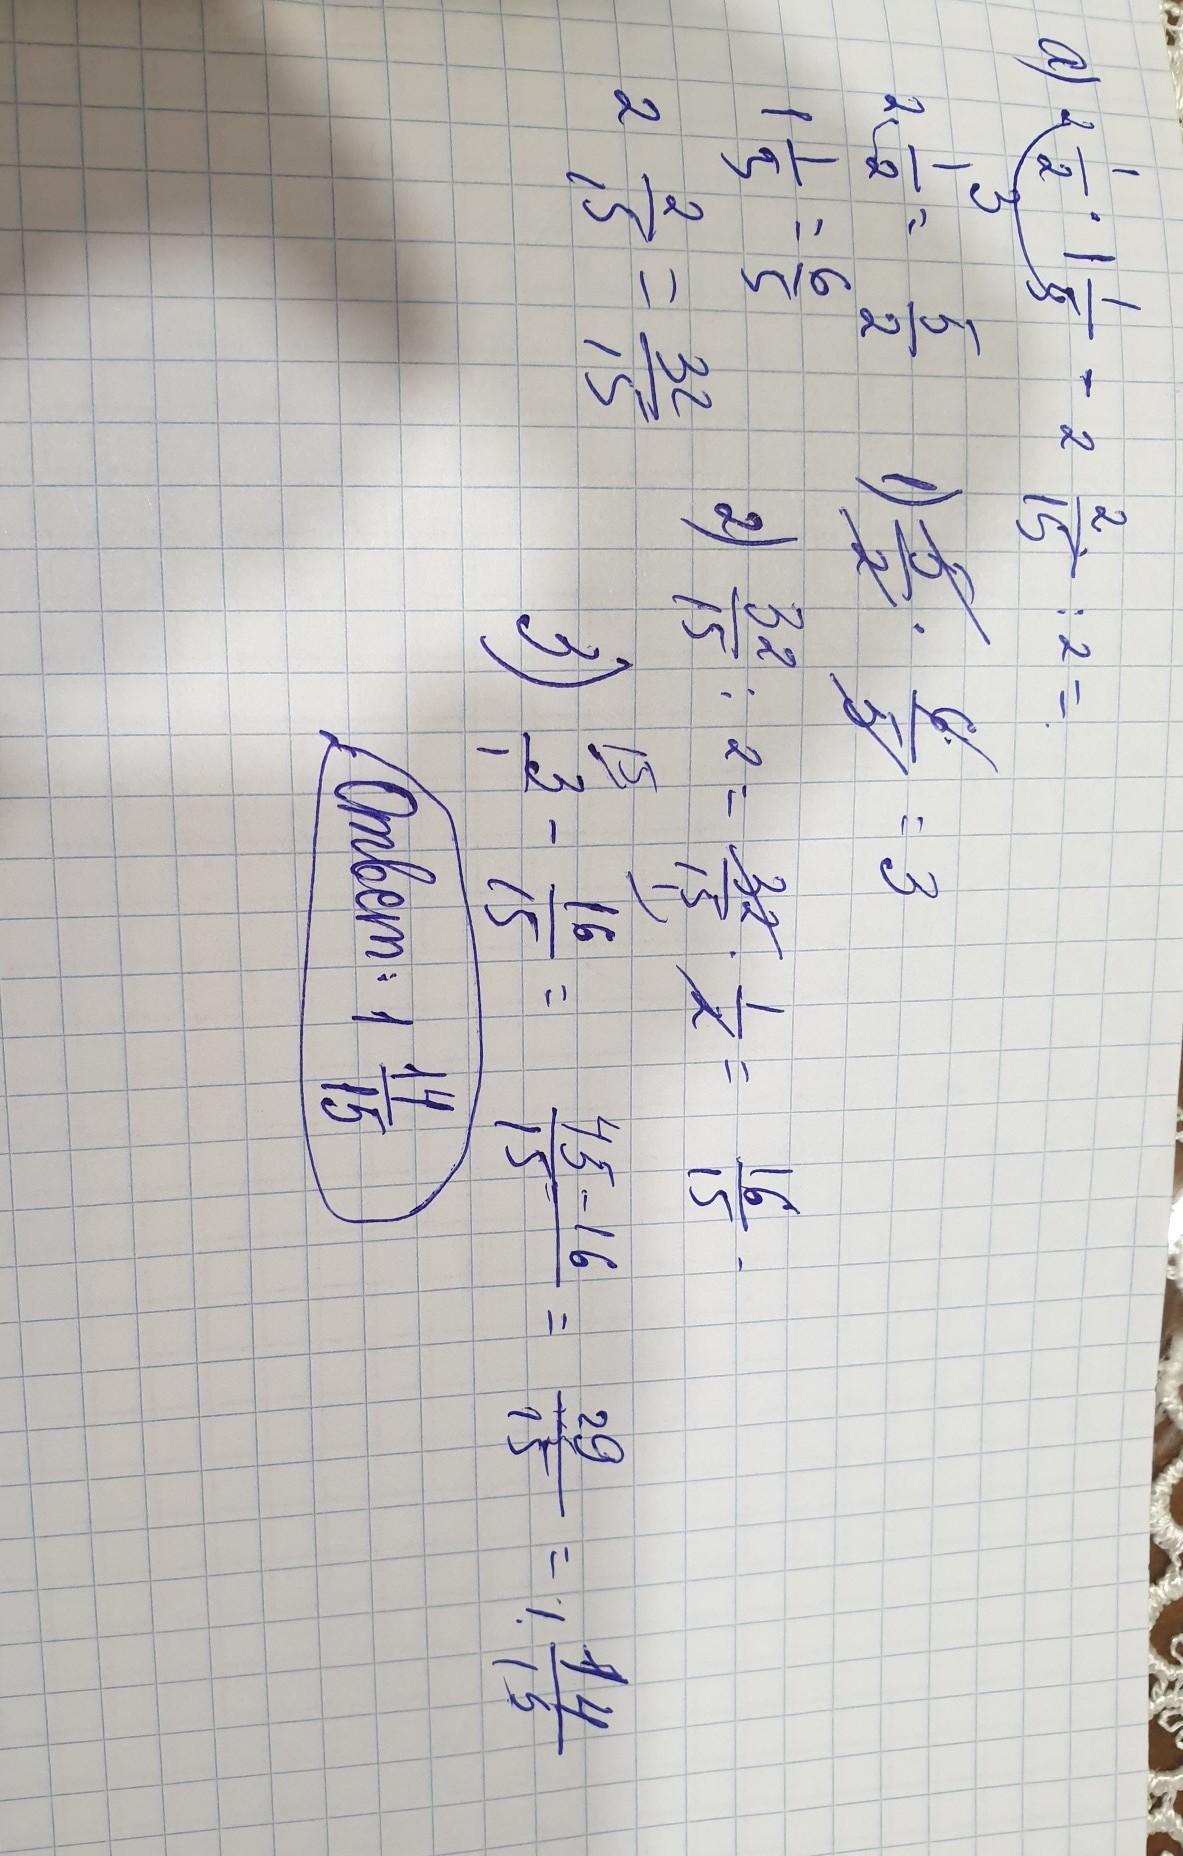 а) 2 1/2 · 1 1/5 - 2 2/15 : 2 =
2 1/2 = 5/2
1) 5/2 · 6/5 = 3
1 1/5 = 6/5
2) 32/15 : 2 = 32/15 · 1/2 = 16/15
2 2/15 = 32/15
3) 3/1 - 16/15 = 45-16/15 = 29/15 = 1 14/15
Ответ: 1 14/15